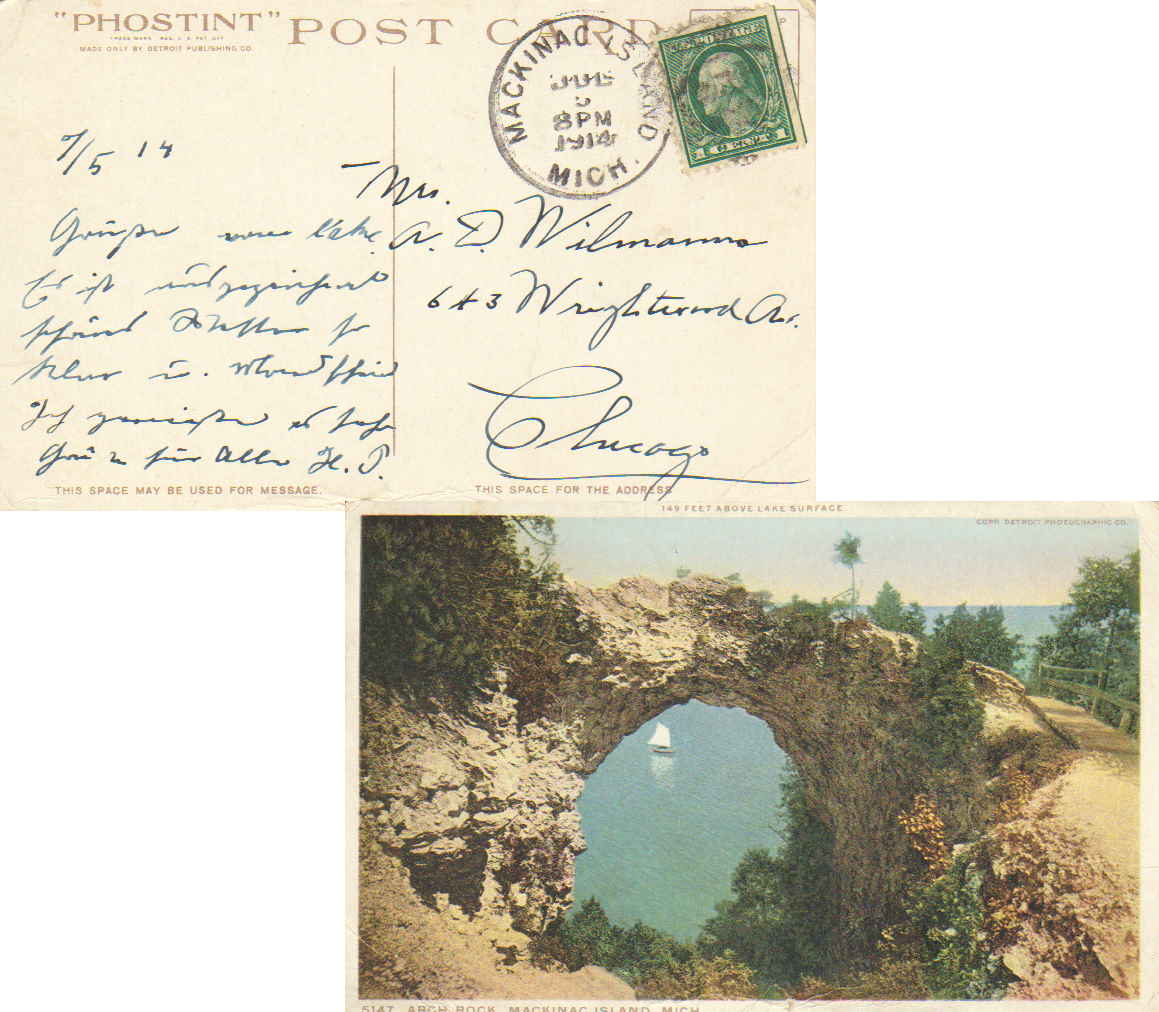 "PHOSTINT" POST CARD
TRADE MARK REG. U. S. PAT. OFF.
MADE ONLY BY DETROIT PUBLISHING CO.
MACKINAC ISLAND
JUL
5
8PM
1914
MICH.
7/5 14
Mrs.
A. D. Wilmanns
643 Wrightwood Av.
Chicago
Grüße vom Lake
Es ist ausgezeichnet
schönes Wetter so
klar u. Mondschein
Ich genieße es sehr
für Alle H. P.
THIS SPACE MAY BE USED FOR MESSAGE.
THIS SPACE FOR THE ADDRESS
149 FEET ABOVE LAKE SURFACE
COPR. DETROIT PHOTOGRAPHIC CO.
5147. ARCH ROCK, MACKINAC ISLAND, MICH.